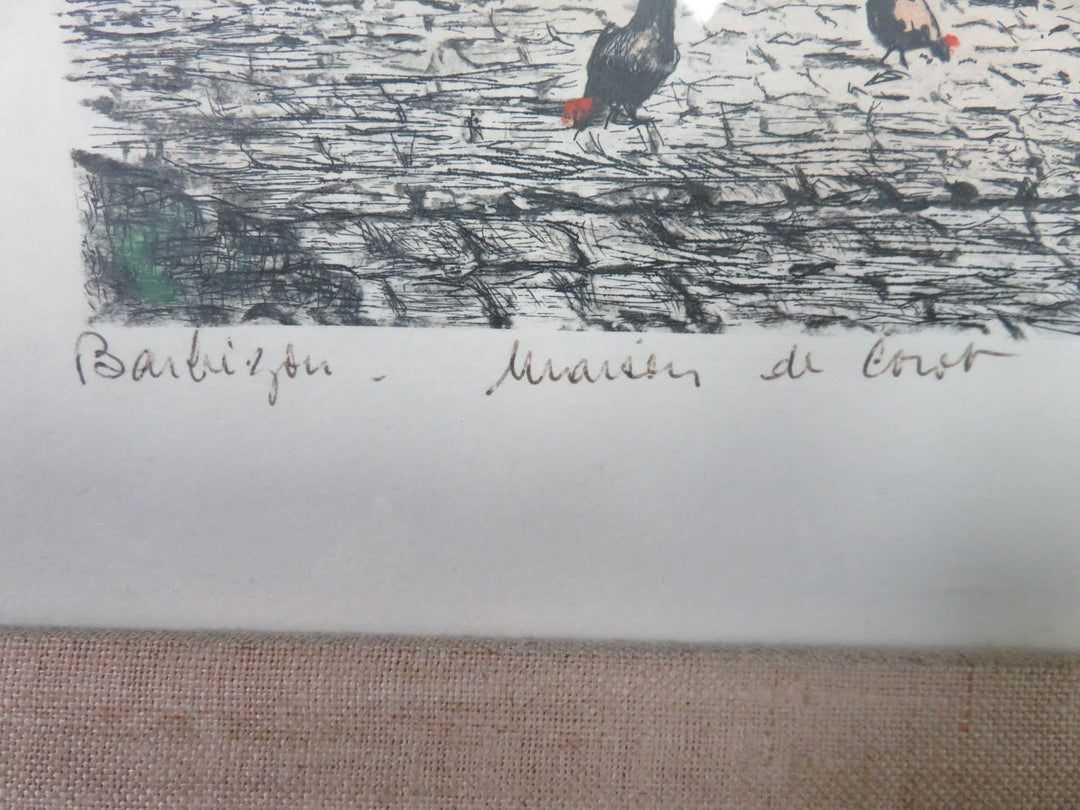 Barbizon - Maison de Corot